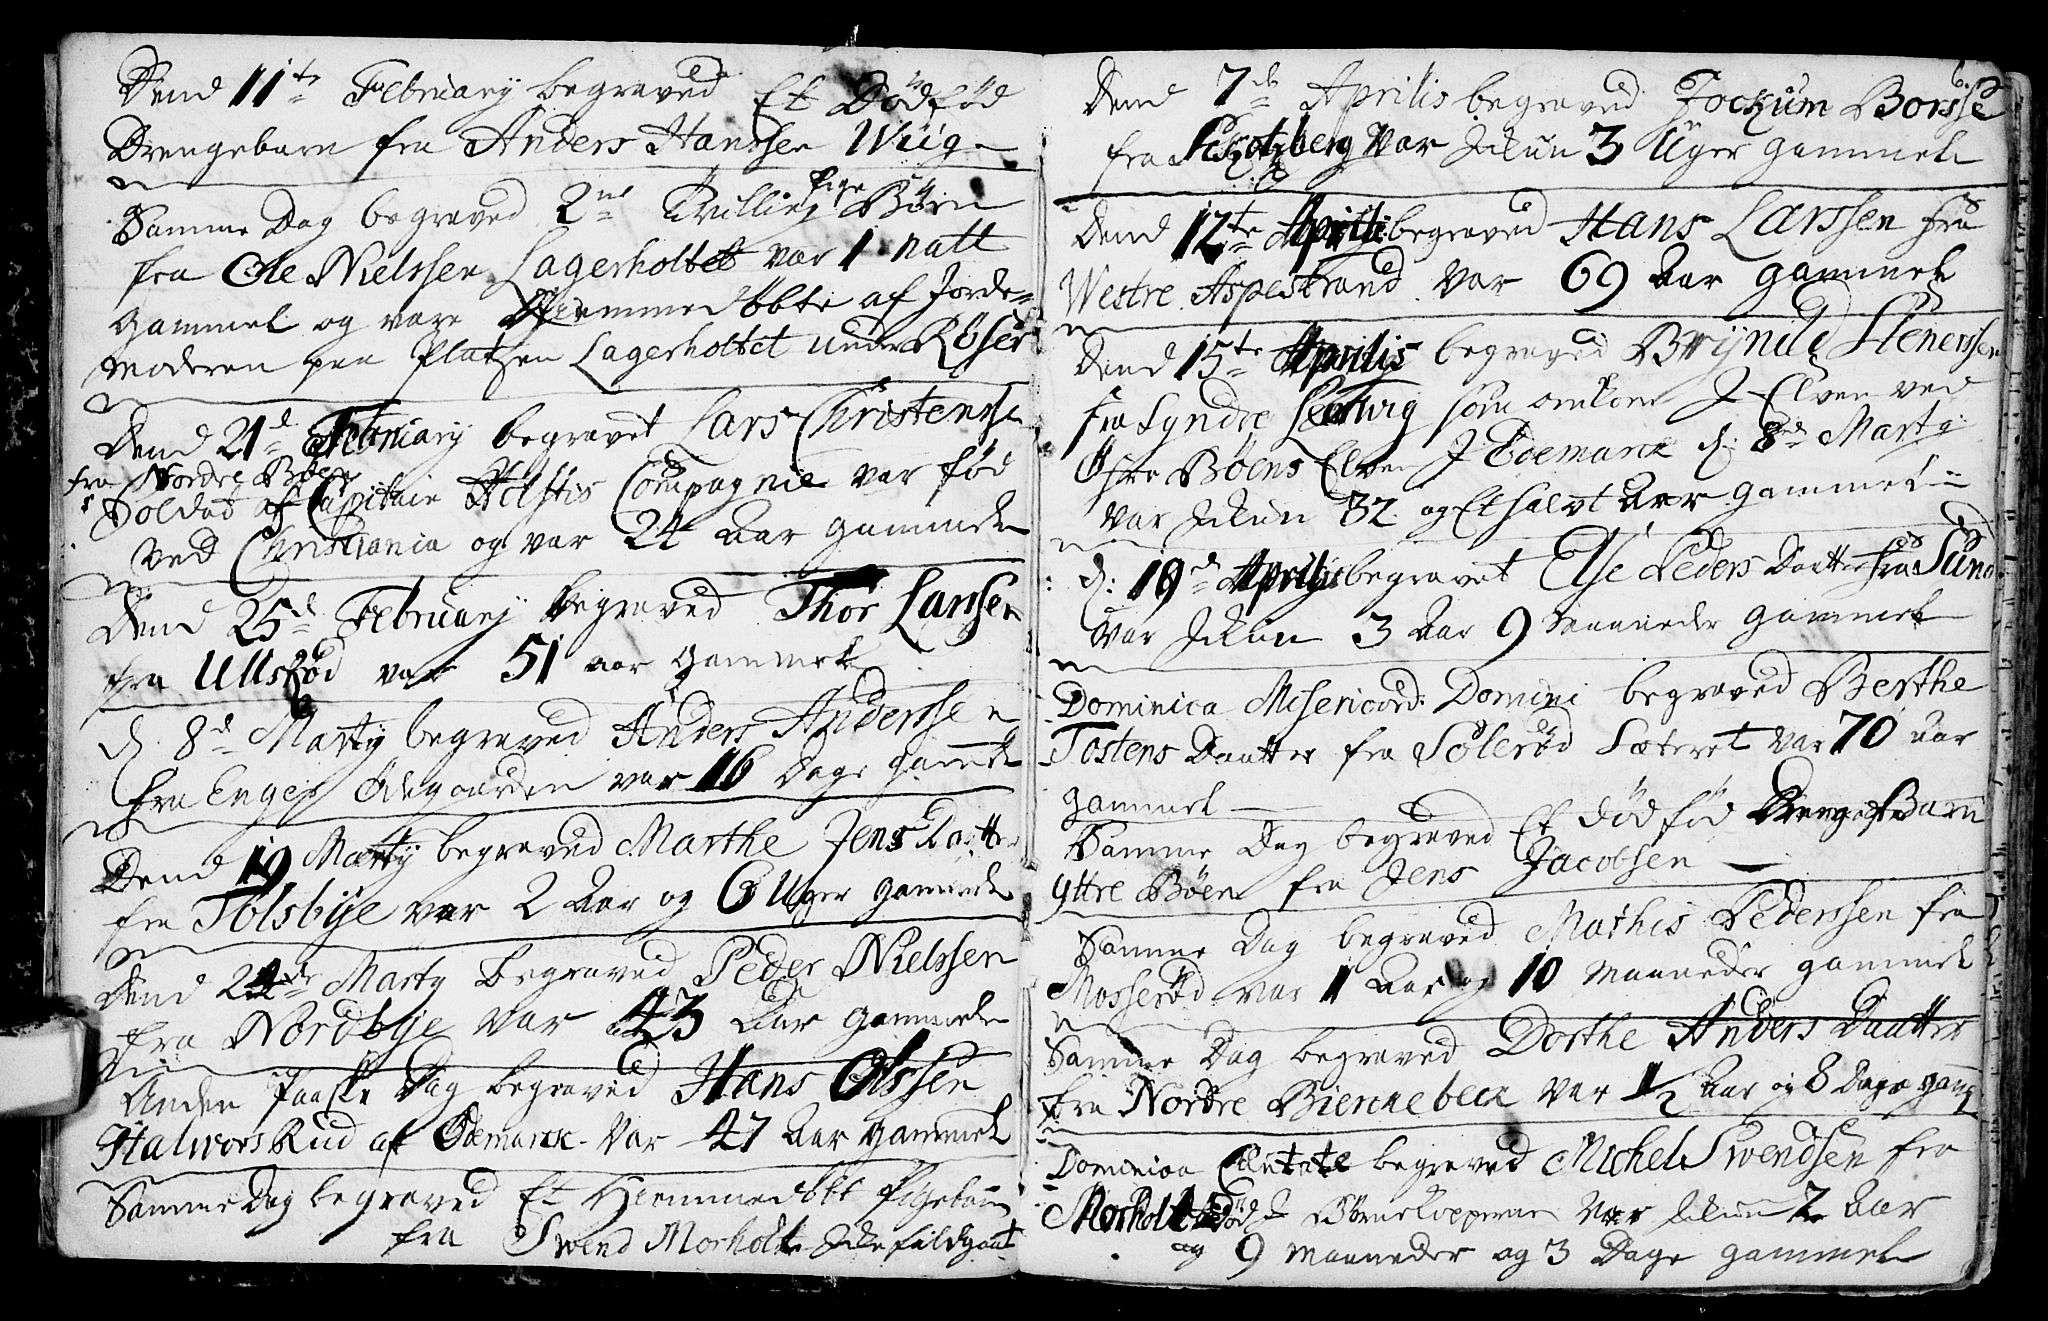 Dend 11te February begraved Et Dødfød
Drengebarn fra Anders Hanssen Wiig
Samme Dag begraved 2ne Tvilling Pige Børn
fra Ole Nielssen Lagerholtet var 1 natt
gammel og vare Hiemmedøbte af Jorde-
moderen paa Platzen Lagerholtet under Røser
Dend 21d February begravet Lars Christenssen
fra Nordre Bøen
Soldad af Capitain Holstis Compagnie var fød
ved Christiania og var 24 Aar gammel
Dend 25d February begraved Thor Larssen
fra Ullsrød var 51 aar gammel
d. 8d Marty begraved Anders Anderssen
fra Enger Ødegaarden var 16 Dage gammel
Dend 19 Marty begraved Marthe Jens Daatter
fra Tolsbye var 2 Aar og 6 Uger gammel
Dend 24de Marty begraved Peder Nielssen
fra Nordbye var 43 Aar gammel
Anden Paaske Dag begraved Hans Olssen
Halwors Rud af Ødemarck var 47 Aar gammel
Samme Dag begraved Et Hiemmedøbt Pigebarn
fra Swend Morholt Icke fuldgaat
6.
Dend 7de Aprilis begraved Jockum Borsse
fra var Ickun 3 Uger gammel
Dend 12te Aprilis begraved Hans Larssen fra
Westre Aspestrand var 69 Aar gammel
Dend 15te Aprilis begraved Brynild Stenerssen
fra Syndre som omkom I Elven ved
Øfre Bøens Elven I Ødemarck d: 8de Marty
var Ickun 32 og Et halvt Aar gammel
d: 19d Aprilis begravet Else Peders Daatter fra Sund
var Ickun 3 Aar 9 Maaneder gammel
Dominica Misericord: Domini begraved Berthe
Tostens Daatter fra Sølerød Sæteret var 70 aar
gammel
Samme Dag begraved Et dødfød Drenge Barn
Yttre Bøen fra Jens Jacobsen
Samme Dag begraved Mathis Pederssen fra
Mosserød var 1 Aar og 10 Maaneder gammel
Samme Dag begraved Dorthe Anders Daatter
fra Nordre Biennebeck var 1½ Aar og 8 Dage gam:
Dominica Cantate begraved Michel Swendsen fra
Morholt Død I Børnekopperne var Ickun 2 Aar
og 9 Maaneder og 3 Dage gammel